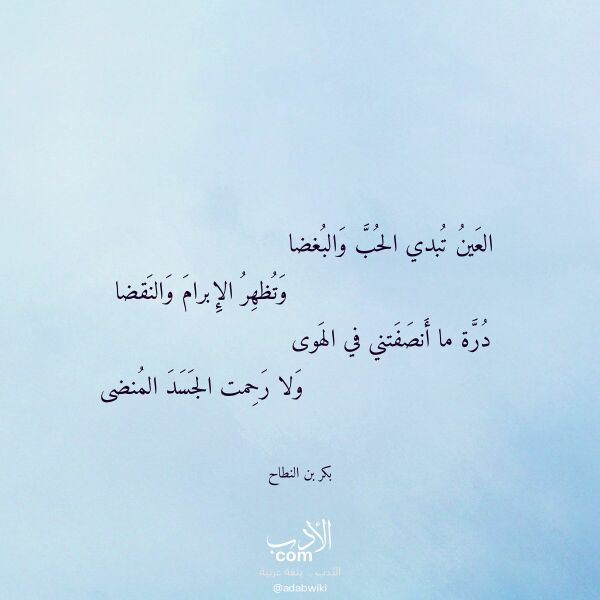 العَينُ تُبدي الحُبَّ وَالبُغضا
وَتُظهِرُ الإِبرامَ وَالنَقضا
دُرَّة ما أَنصَفَتني في الهَوى
وَلا رَحِمت الجَسَدَ المُنضى
بكر بن النطاح
الأدب
com
الأدب .. بلغة عربية
@adabwiki